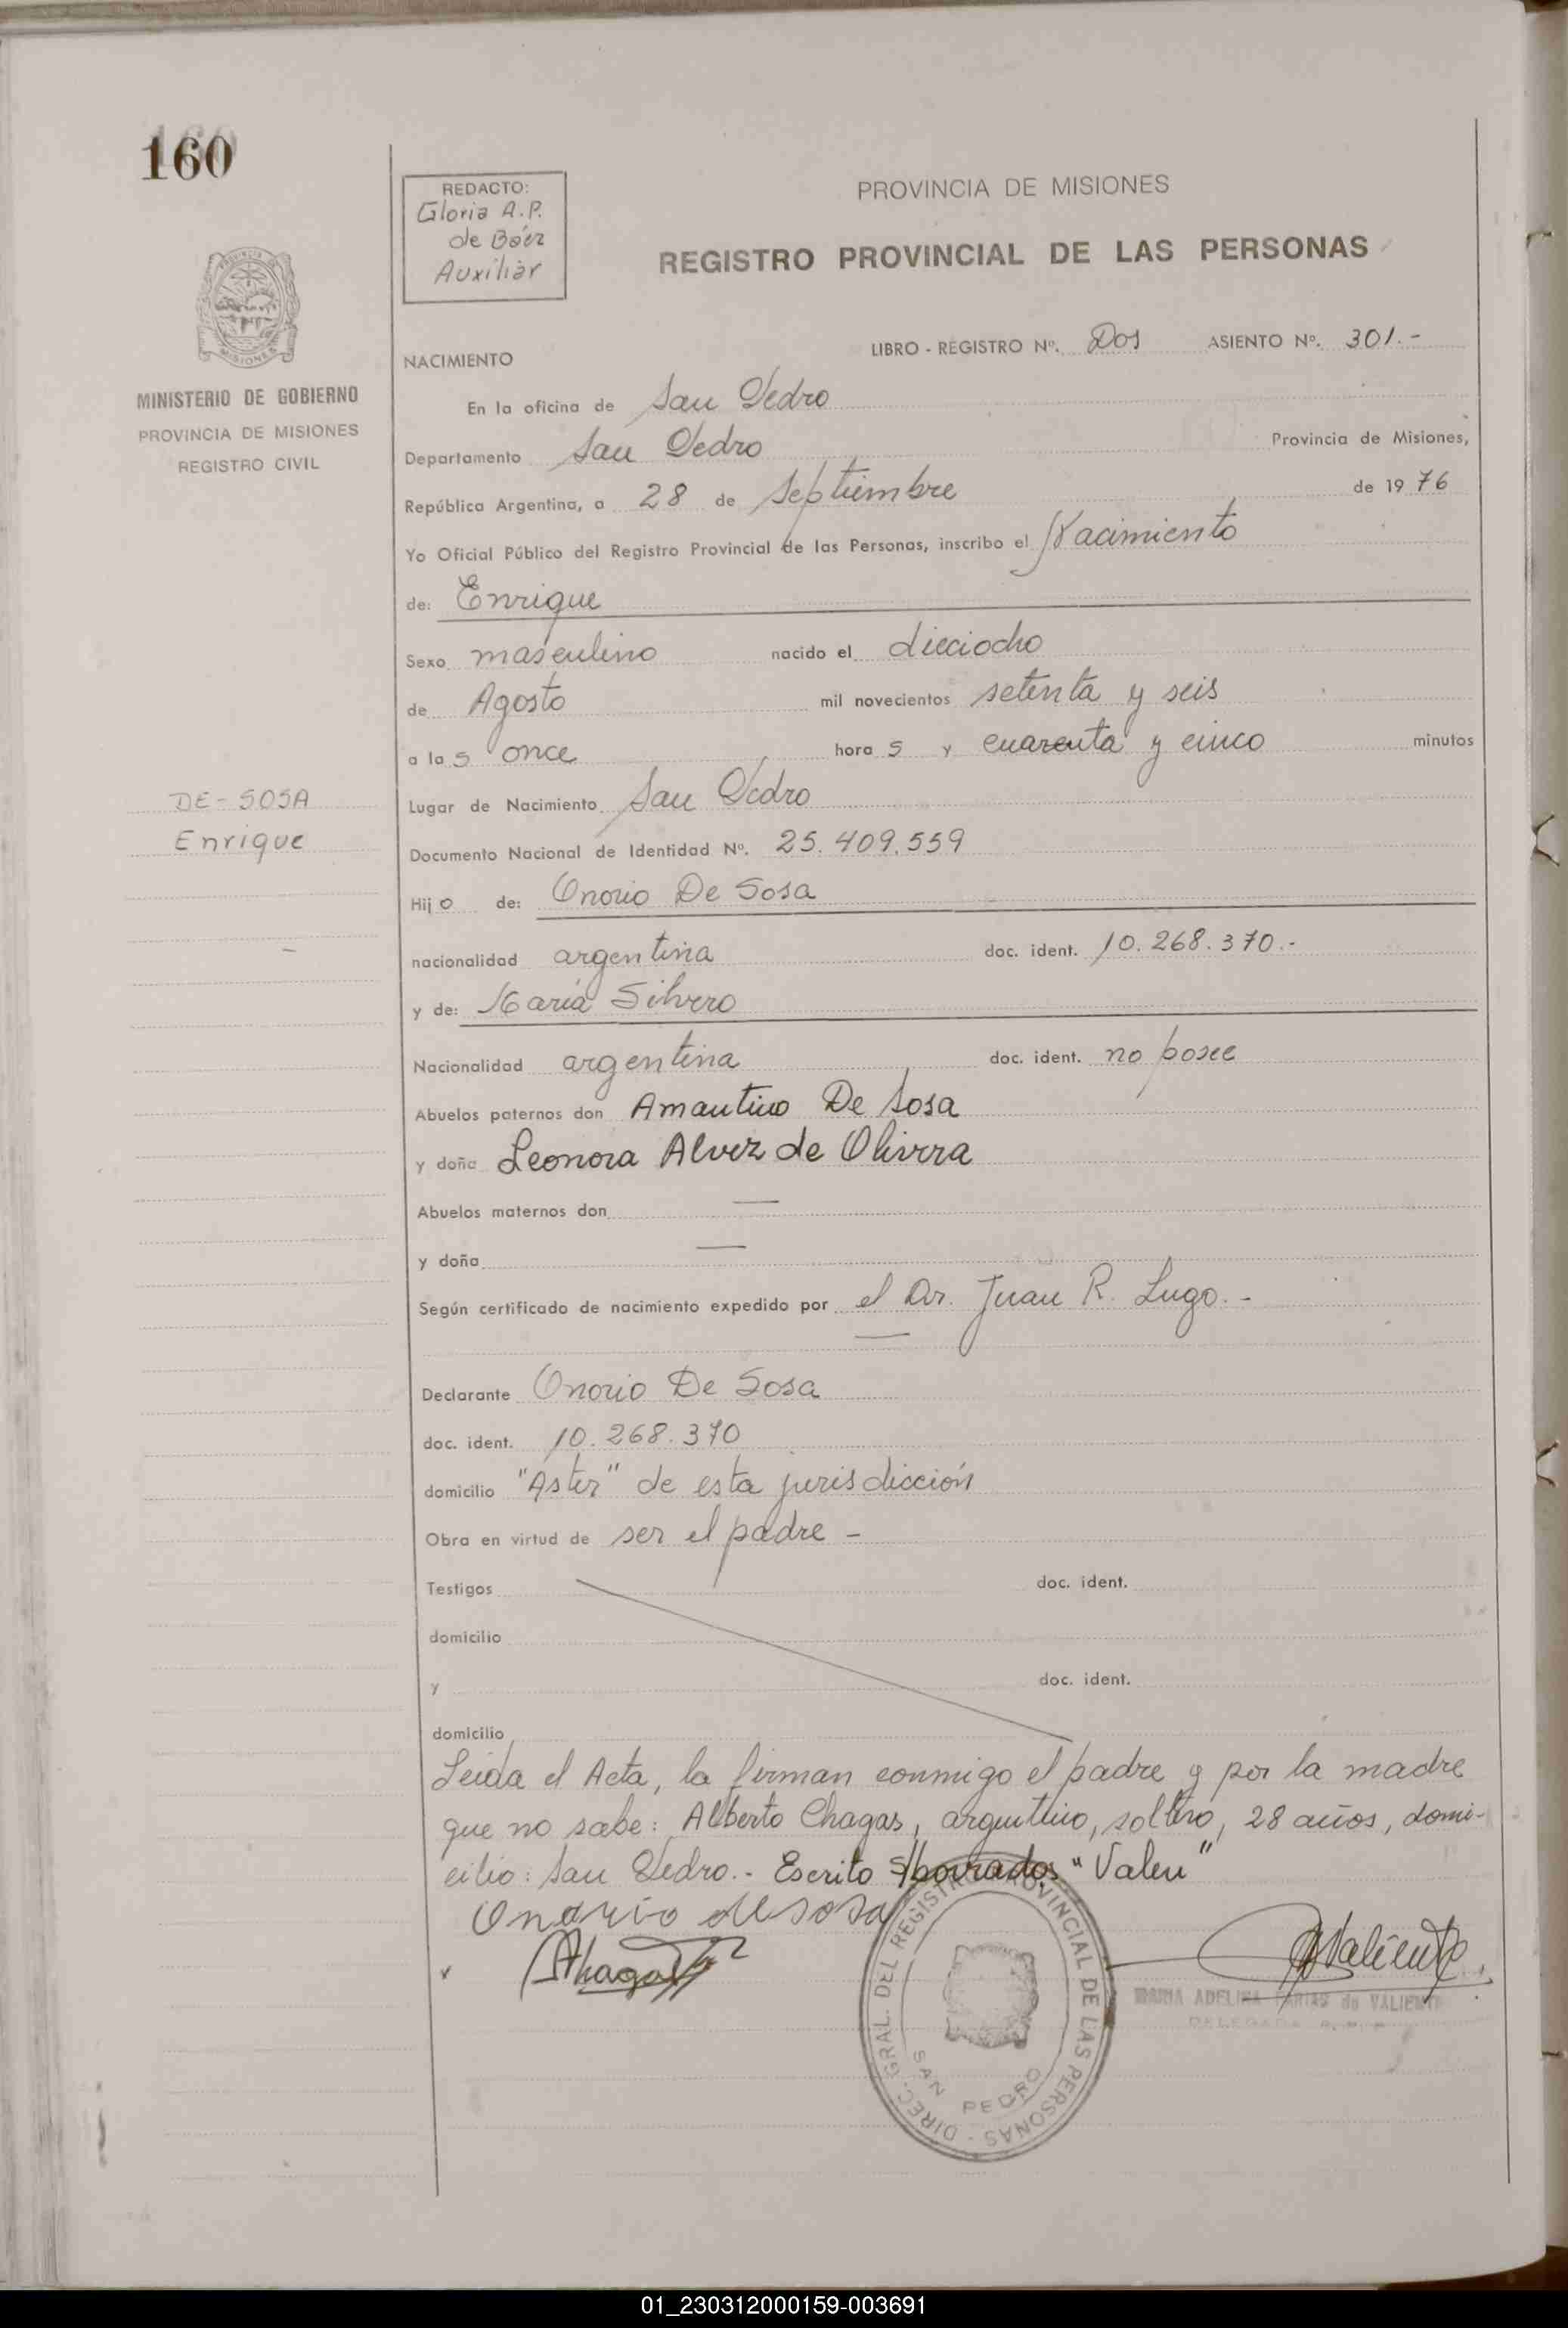 160
REDACTO:
Gloria A.P.
de Báez
Auxiliar
PROVINCIA DE MISIONES
REGISTRO PROVINCIAL DE LAS PERSONAS
MISIONES
MINISTERIO DE GOBIERNO
PROVINCIA DE MISIONES
REGISTRO CIVIL
NACIMIENTO
LIBRO - REGISTRO Nº. Dos ASIENTO Nº. 301.-
En la oficina de San Pedro
Departamento San Pedro Provincia de Misiones,
República Argentina, a 28 de Septiembre de 1976
Yo Oficial Público del Registro Provincial de las Personas, inscribo el Nacimiento
de: Enrique
Sexo masculino nacido el dieciocho
de Agosto mil novecientos setenta y seis
a las once horas y cuarenta y cinco minutos
DE-SOSA
Enrique
Lugar de Nacimiento San Pedro
Documento Nacional de Identidad Nº. 25.409.559
Hijo de: Onorio De Sosa
nacionalidad argentina doc. ident. 10.268.370.-
y de: María Silvero
Nacionalidad argentina doc. ident. no posee
Abuelos paternos don Amantino De Sosa
y doña Leonora Alvez de Olivera
Abuelos maternos don —
y doña —
Según certificado de nacimiento expedido por el Dr. Juan R. Lugo.-
—
Declarante Onorio De Sosa
doc. ident. 10.268.370
domicilio "Aster" de esta jurisdicción
Obra en virtud de ser el padre -
Testigos doc. ident.
domicilio
y doc. ident.
domicilio
Leída el Acta, la firman conmigo el padre y por la madre
que no sabe: Alberto Chagas, argentino, soltero, 28 años, domi-
cilio: San Pedro.- Escrito s/borrados "Valen"
Onorio de sosa
AChagas
Valiente
MARIA ADELINA FARIAS de VALIENTE
DELEGADA
DIREC. GRAL. DEL REGISTRO PROVINCIAL DE LAS PERSONAS -
SAN PEDRO
01_230312000159-003691